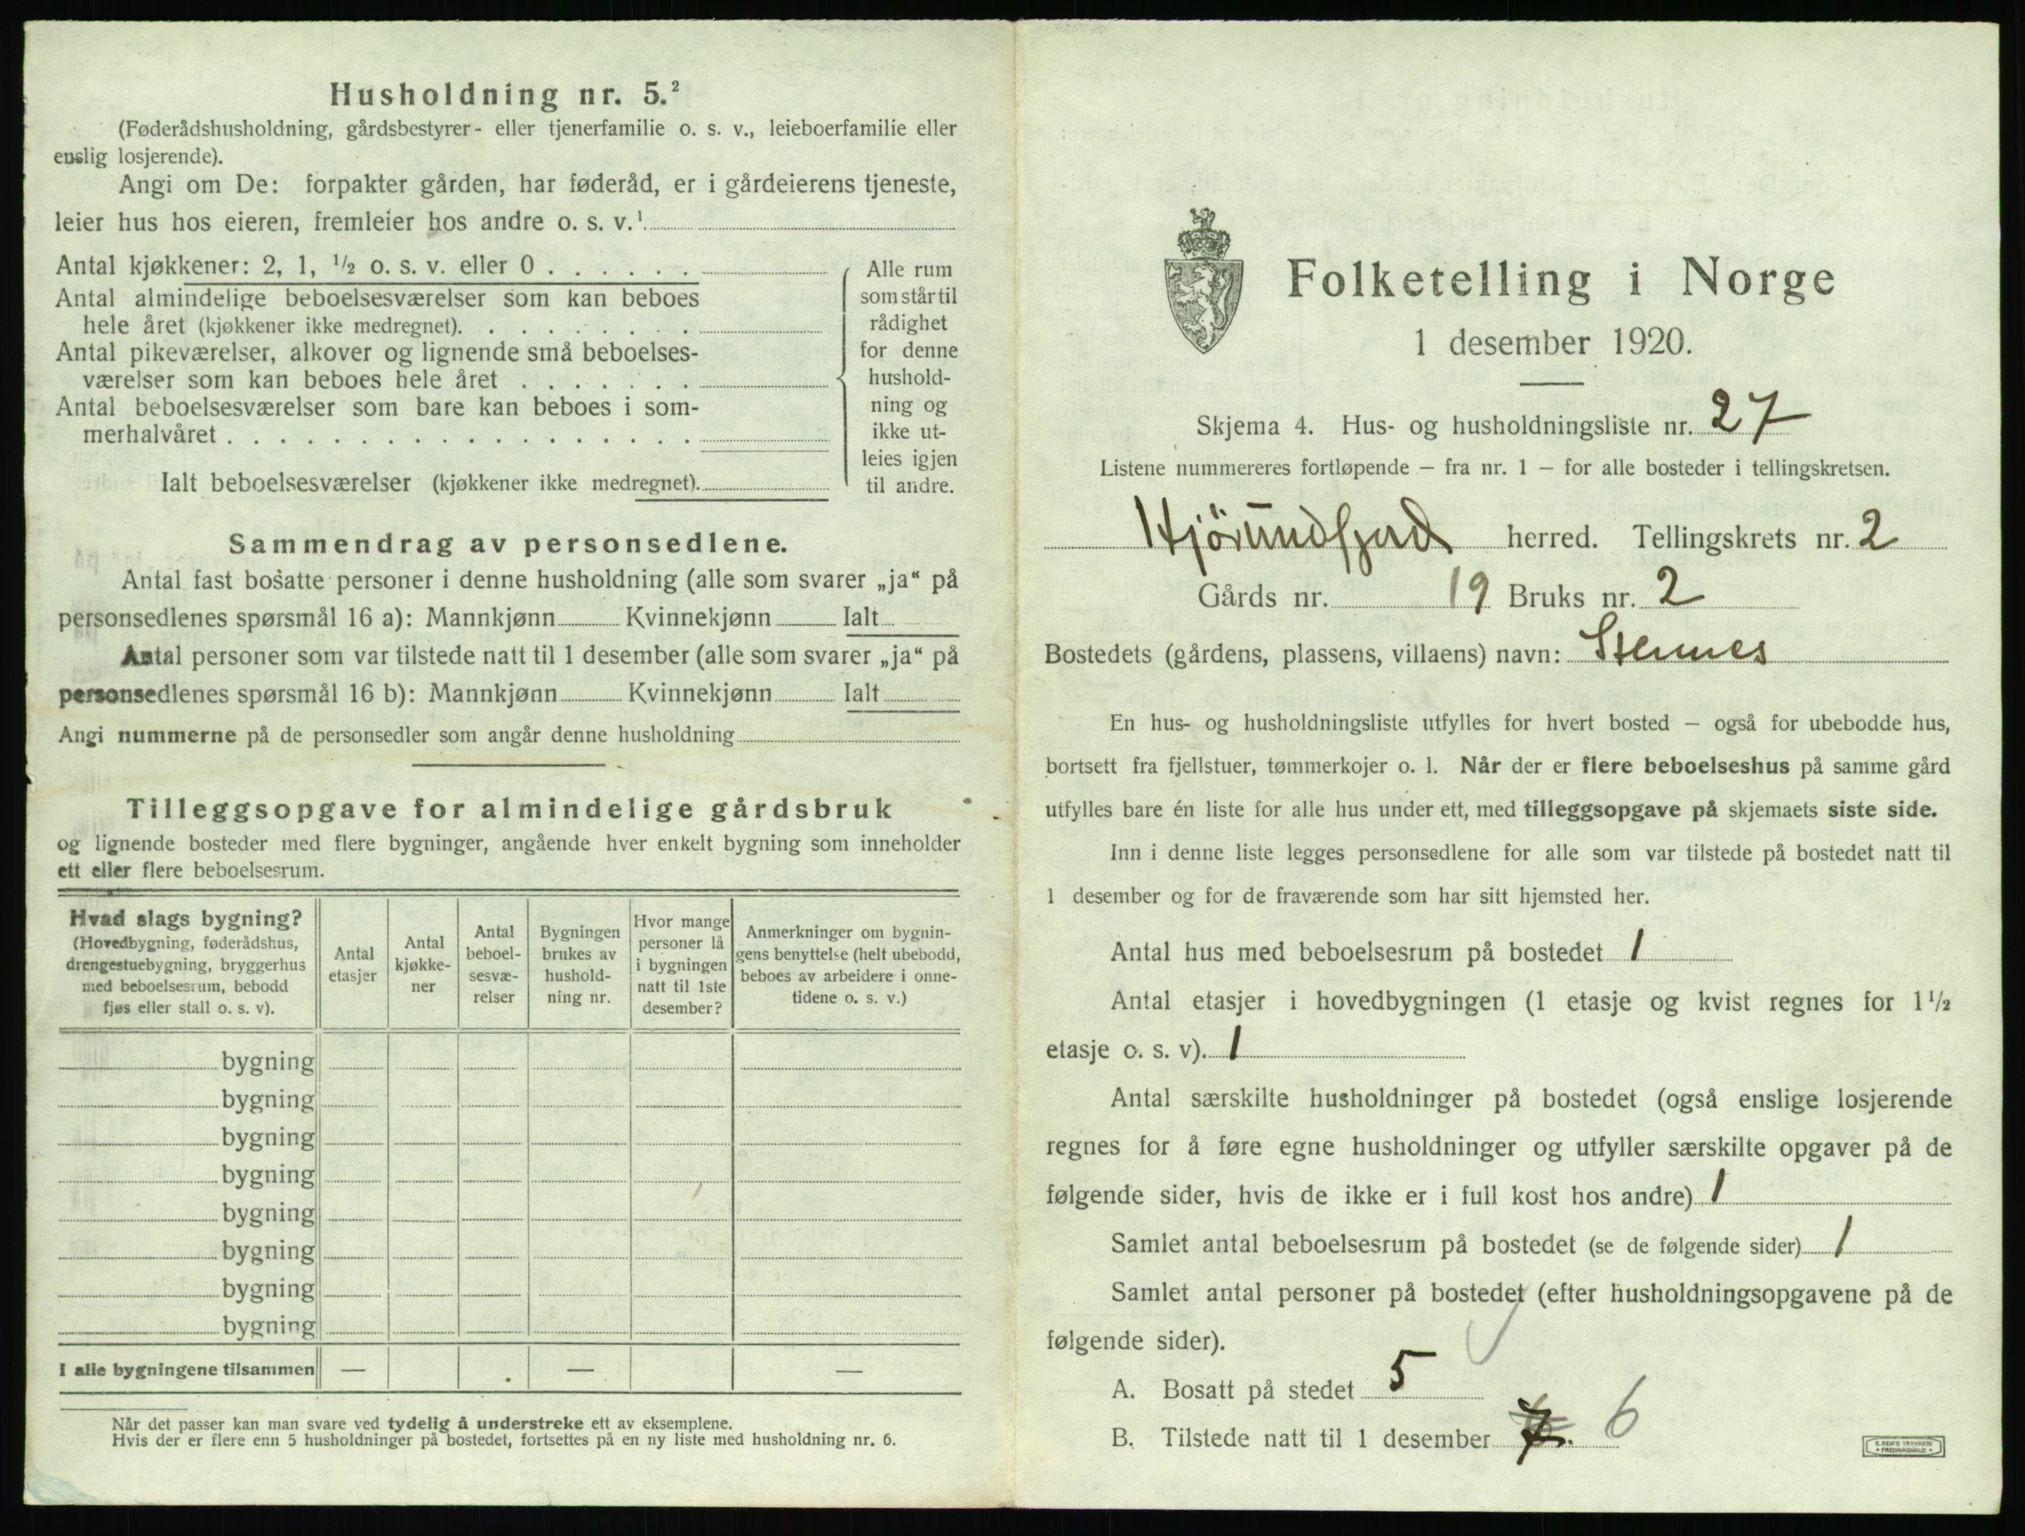 Husholdning nr. 5.²
(Føderådshusholdning, gårdsbestyrer- eller tjenerfamilie o. s. v., leieboerfamilie eller
enslig losjerende).
Angi om De: forpakter gården, har føderåd, er i gårdeierens tjeneste,
leier hus hos eieren, fremleier hos andre o. s. v.¹
Antal kjøkkener: 2, 1, ½ o. s. v. eller 0 . . . . . .
Antal almindelige beboelsesværelser som kan beboes
hele året (kjøkkener ikke medregnet). . . . . . . . .
Antal pikeværelser, alkover og lignende små beboelses-
værelser som kan beboes hele året . . . . . . .
Antal beboelsesværelser som bare kan beboes i som-
merhalvåret . . . . . . . . . . . . . . . . . .
Ialt beboelsesværelser (kjøkkener ikke medregnet).
Alle rum
som står til
rådighet
for denne
hushold-
ning og
ikke ut-
leies igjen
til andre.
Sammendrag av personsedlene.
Antal fast bosatte personer i denne husholdning (alle som svarer „ja“ på
personsedlenes spørsmål 16 a): Mannkjønn Kvinnekjønn Ialt
Antal personer som var tilstede natt til 1 desember (alle som svarer „ja“ på
personsedlenes spørsmål 16 b): Mannkjønn Kvinnekjønn Ialt
Angi nummerne på de personsedler som angår denne husholdning
Tilleggsopgave for almindelige gårdsbruk
og lignende bosteder med flere bygninger, angående hver enkelt bygning som inneholder
ett eller flere beboelsesrum.
Hvad slags bygning?
(Hovedbygning, føderådshus,
drengestuebygning, bryggerhus
med beboelsesrum, bebodd
fjøs eller stall o. s. v).
Antal
etasjer
Antal
kjøkke-
ner
Antal
beboel-
sesvæ-
relser
Bygningen
brukes av
hushold-
ning nr.
Hvor mange
personer lå
i bygningen
natt til 1ste
desember?
Anmerkninger om bygnin-
gens benyttelse (helt ubebodd,
beboes av arbeidere i onne-
tidene o. s. v.)
bygning
bygning
bygning
bygning
bygning
bygning
bygning
bygning
I alle bygningene tilsammen — — —
Når det passer kan man svare ved tydelig å understreke ett av eksemplene.
Hvis der er flere enn 5 husholdninger på bostedet, fortsettes på en ny liste med husholdning nr. 6.
Folketelling i Norge
1 desember 1920.
Skjema 4. Hus- og husholdningsliste nr. 27
Listene nummereres fortløpende – fra nr. 1 – for alle bosteder i tellingskretsen.
Hjørundfjord herred. Tellingskrets nr. 2
Gårds nr. 19 Bruks nr. 2
Bostedets (gårdens, plassens, villaens) navn: Stennes
En hus- og husholdningsliste utfylles for hvert bosted – også for ubebodde hus,
bortsett fra fjellstuer, tømmerkojer o. l. Når der er flere beboelseshus på samme gård
utfylles bare én liste for alle hus under ett, med tilleggsopgave på skjemaets siste side.
Inn i denne liste legges personsedlene for alle som var tilstede på bostedet natt til
1 desember og for de fraværende som har sitt hjemsted her.
Antal hus med beboelsesrum på bostedet 1
Antal etasjer i hovedbygningen (1 etasje og kvist regnes for 1½
etasje o. s. v). 1
Antal særskilte husholdninger på bostedet (også enslige losjerende
regnes for å føre egne husholdninger og utfyller særskilte opgaver på de
følgende sider, hvis de ikke er i full kost hos andre) 1
Samlet antal beboelsesrum på bostedet (se de følgende sider) 1
Samlet antal personer på bostedet (efter husholdningsopgavene på de
følgende sider).
A. Bosatt på stedet 5
B. Tilstede natt til 1 desember 7. 6